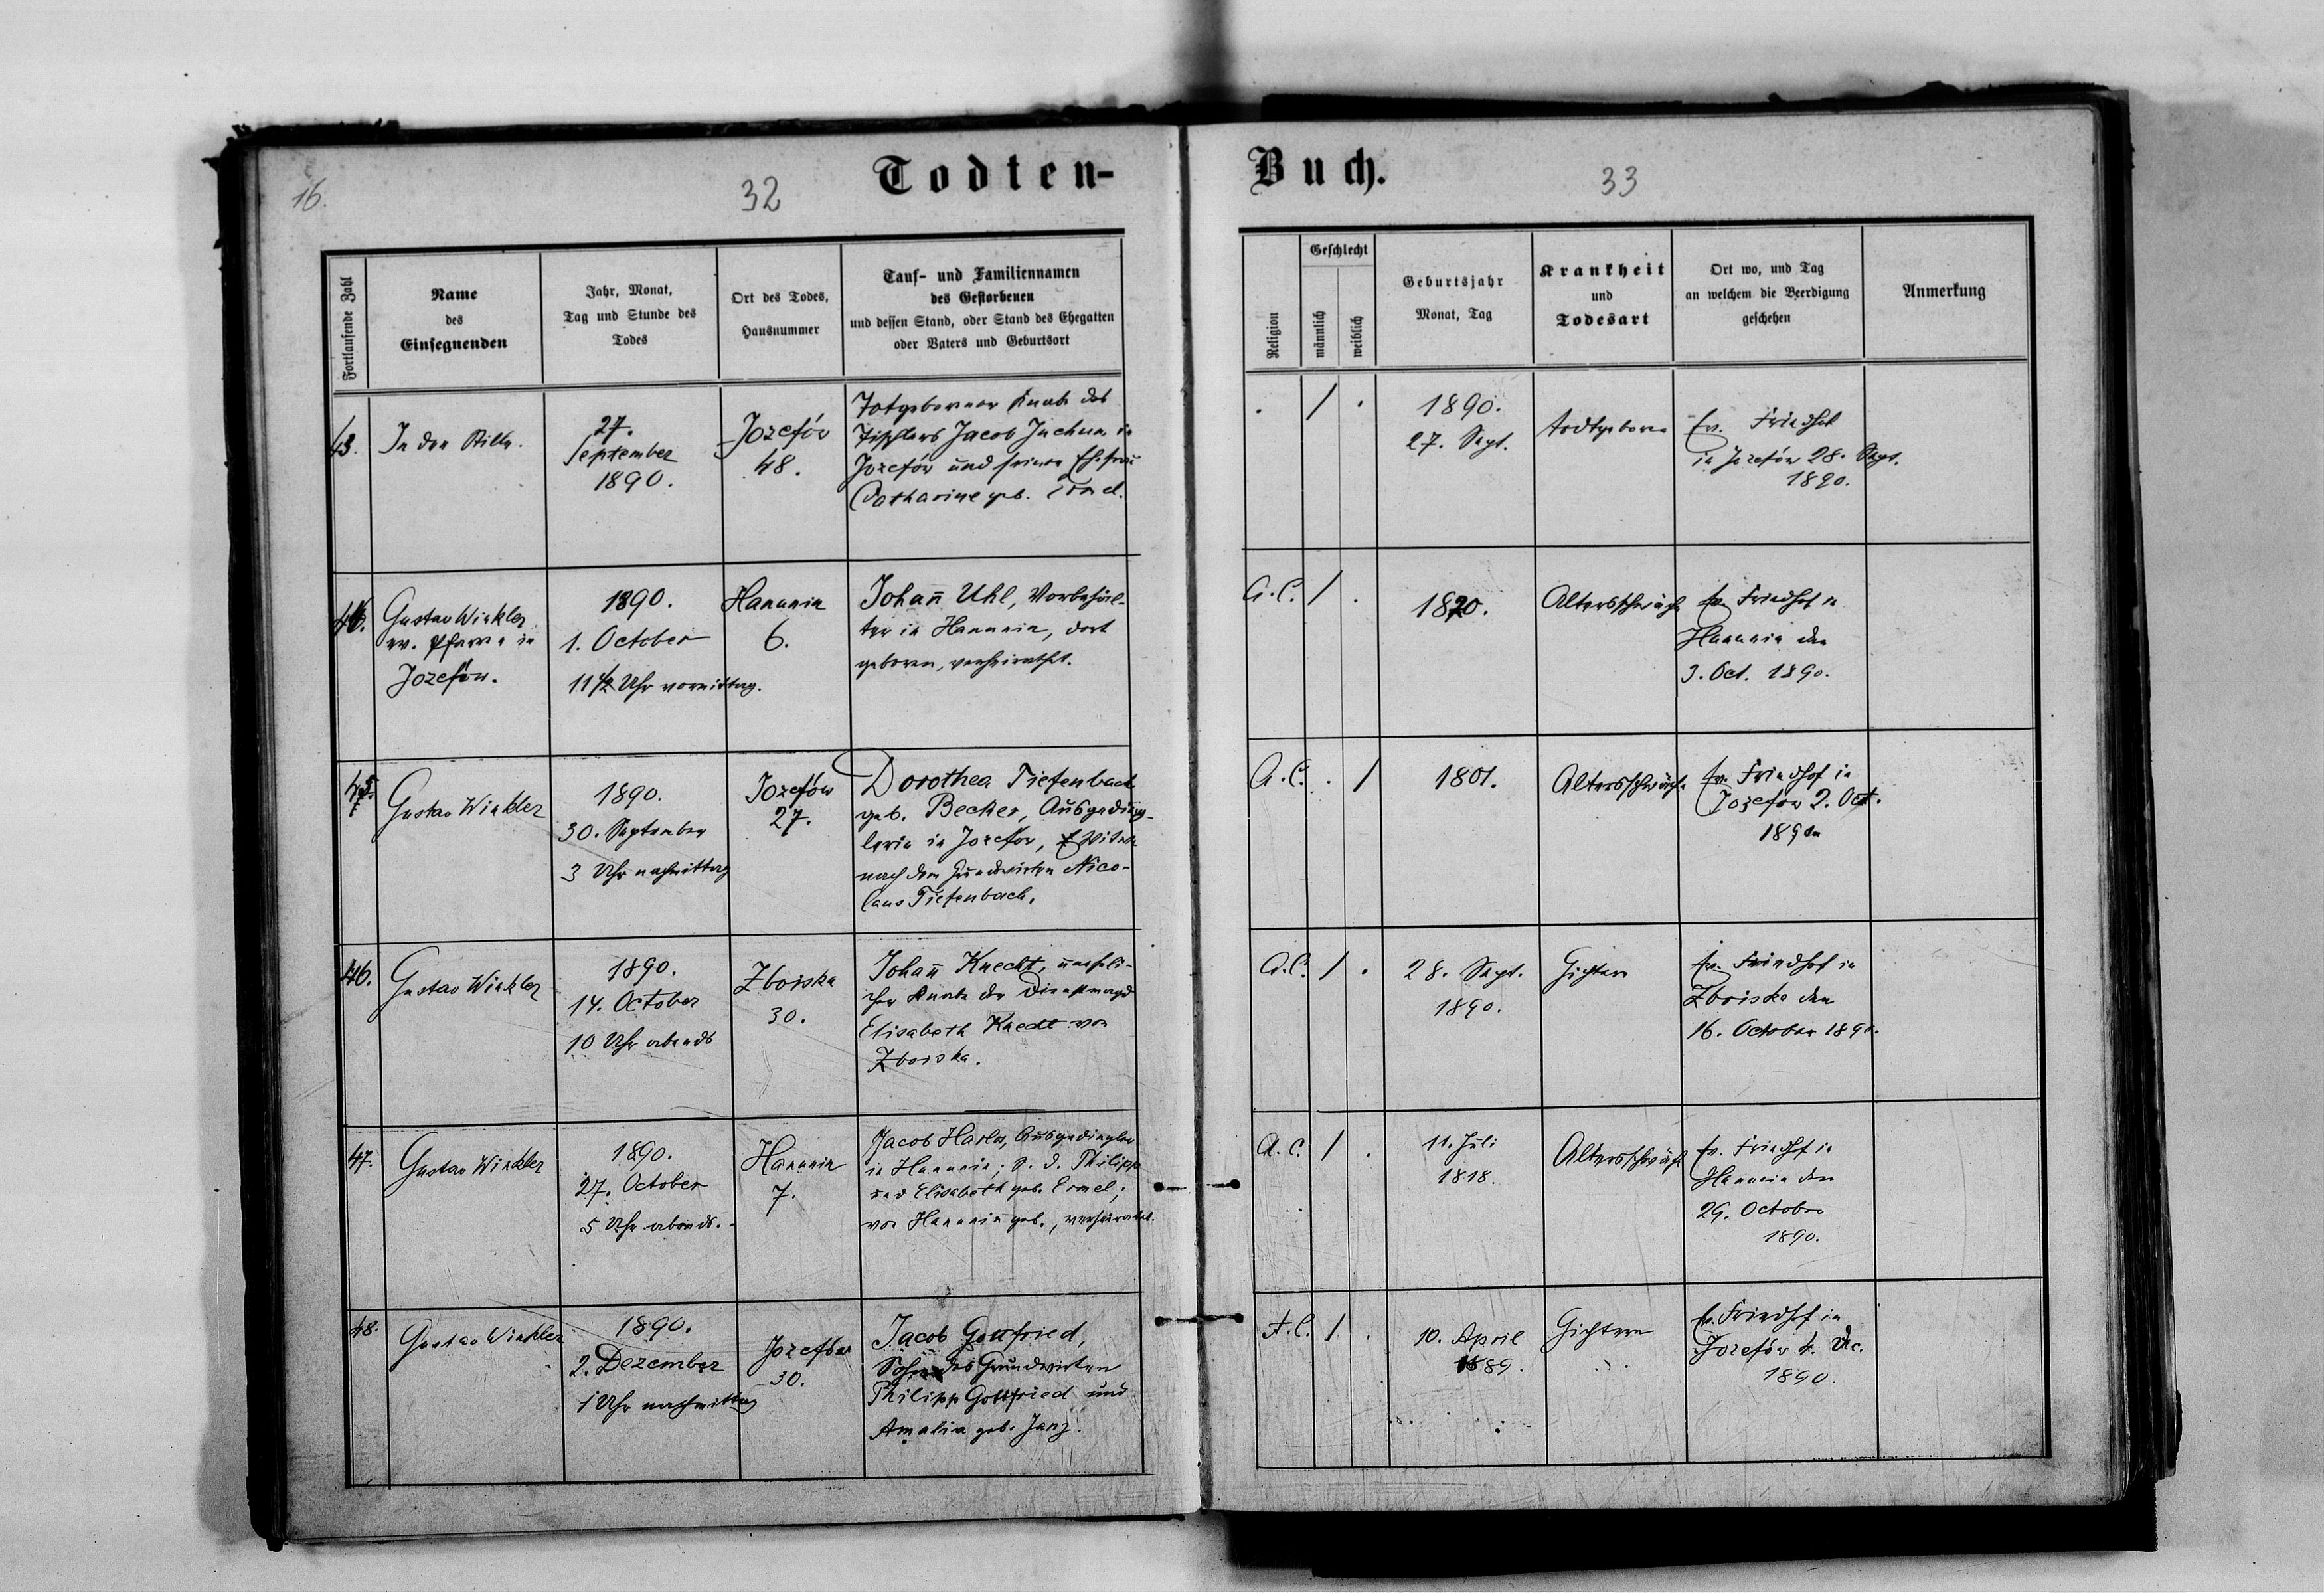 16.
32
Todten-
Fortlaufende Zahl
Name
des
Einsegnenden
Jahr, Monat,
Tag und Stunde des
Todes
Ort des Todes,
Hausnummer
Tauf- und Familiennamen
des Gestorbenen
und dessen Stand, oder Stand des Ehegatten
oder Vaters und Geburtsort
43.
In der Stille.
27.
September
1890.
Jozefów
48.
Totgeborener Knabe des
Tischlers Jacob in
Jozefów und seiner Ehefrau
Catharine geb.
44.
Gustav Winkler
ev. Pfarrer in
Jozefów.
1890.
1. October
11 1/2 Uhr vormittag.
Hanunin
6.
Johañ Uhl, Vorbehäl-
ter in Hanunin, dort
geboren, verheirathet.
45.
Gustav Winkler
1890.
30. September
3 Uhr nachmittag
Jozefów
27.
Dorothea Tiefenbach
geb. Becker, Ausgeding-
lerin in Jozefow, Witwe
nach dem Grundwirten Nico-
laus Tiefenbach.
46.
Gustav Winkler
1890.
14. October
10 Uhr abends
Zboiska
30.
Johañ Knecht, uneheli-
cher Knabe der Dienstmagd
Elisabeth Knecht von
Zboiska.
47.
Gustav Winkler
1890.
27. October
5 Uhr abends.
Hanunin
7.
Jacob Harlos, Ausgedingler
in Hanunin; S. d. Philipp
und Elisabeth geb. Ermel;
von Hanunin geb., verheiratet.
48.
Gustav Winkler
1890.
2. Dezember
1 Uhr nachmittag
Jozefów
30.
Jacob Gottfried,
Sohn des Grundwirten
Philipp Gottfried und
Amalia geb. Janz.
Buch.
33
Religion
Geschlecht
männlich
weiblich
Geburtsjahr
Monat, Tag
Krankheit
und
Todesart
Ort wo, und Tag
an welchem die Beerdigung
geschehen
Anmerkung
. / .
1890.
27. Sept.
todtgeboren
Ev. Friedhof
in Jozefów 28. Sept.
1890.
A. C. / .
1820.
Altersschwäche
Ev. Friedhof in
Hanunin den
3. Oct. 1890.
A. C. . /
1801.
Altersschwäche
Ev. Friedhof in
Jozefow 2. Oct.
1890
A. C. / .
28. Sept.
1890.
Gichtern
Ev. Friedhof in
Zboiska den
16. October 1890.
A. C. / .
11. Juli
1818.
Altersschwäche
Ev. Friedhof in
Hanunin den
29. October
1890.
A. C. / .
10. April
1889.
Gichtern
Ev. Friedhof in
Jozefów 4. Dec.
1890.